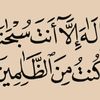 لَهَ إِلَّا أَنتَ سُبْحَٰنَ
كُنتُ مِنَ الظَّالِمِينَ